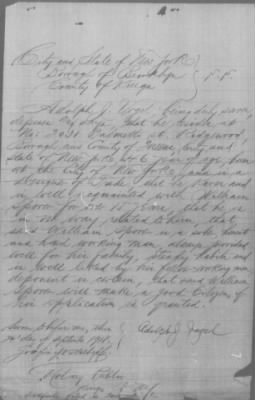 City and State of New York
Borough of Brooklyn
County of Kings
S.S.
Adolph J. Vogel being duly sworn,
deposes and says, that he resides at
No. Palmetto st. Ridgewood,
Borough and County of Queens, City and
State of New York, 46 years of age, born
in the City of New York, and is a
of Trade, that he knows and
is well acquainted with William
Spoon for 20 years, that he is
in no way related to him, that
said William Spoon is a sober, honest
and hard working man, always provided
well for his family, steady habits and
is well liked by his fellow working men
deponent is certain, that said William
Spoon will make a good Citizen, if
his application is granted.
Sworn to before me, this
day of April 1918.
Adolph J. Vogel
Notary Public
Kings